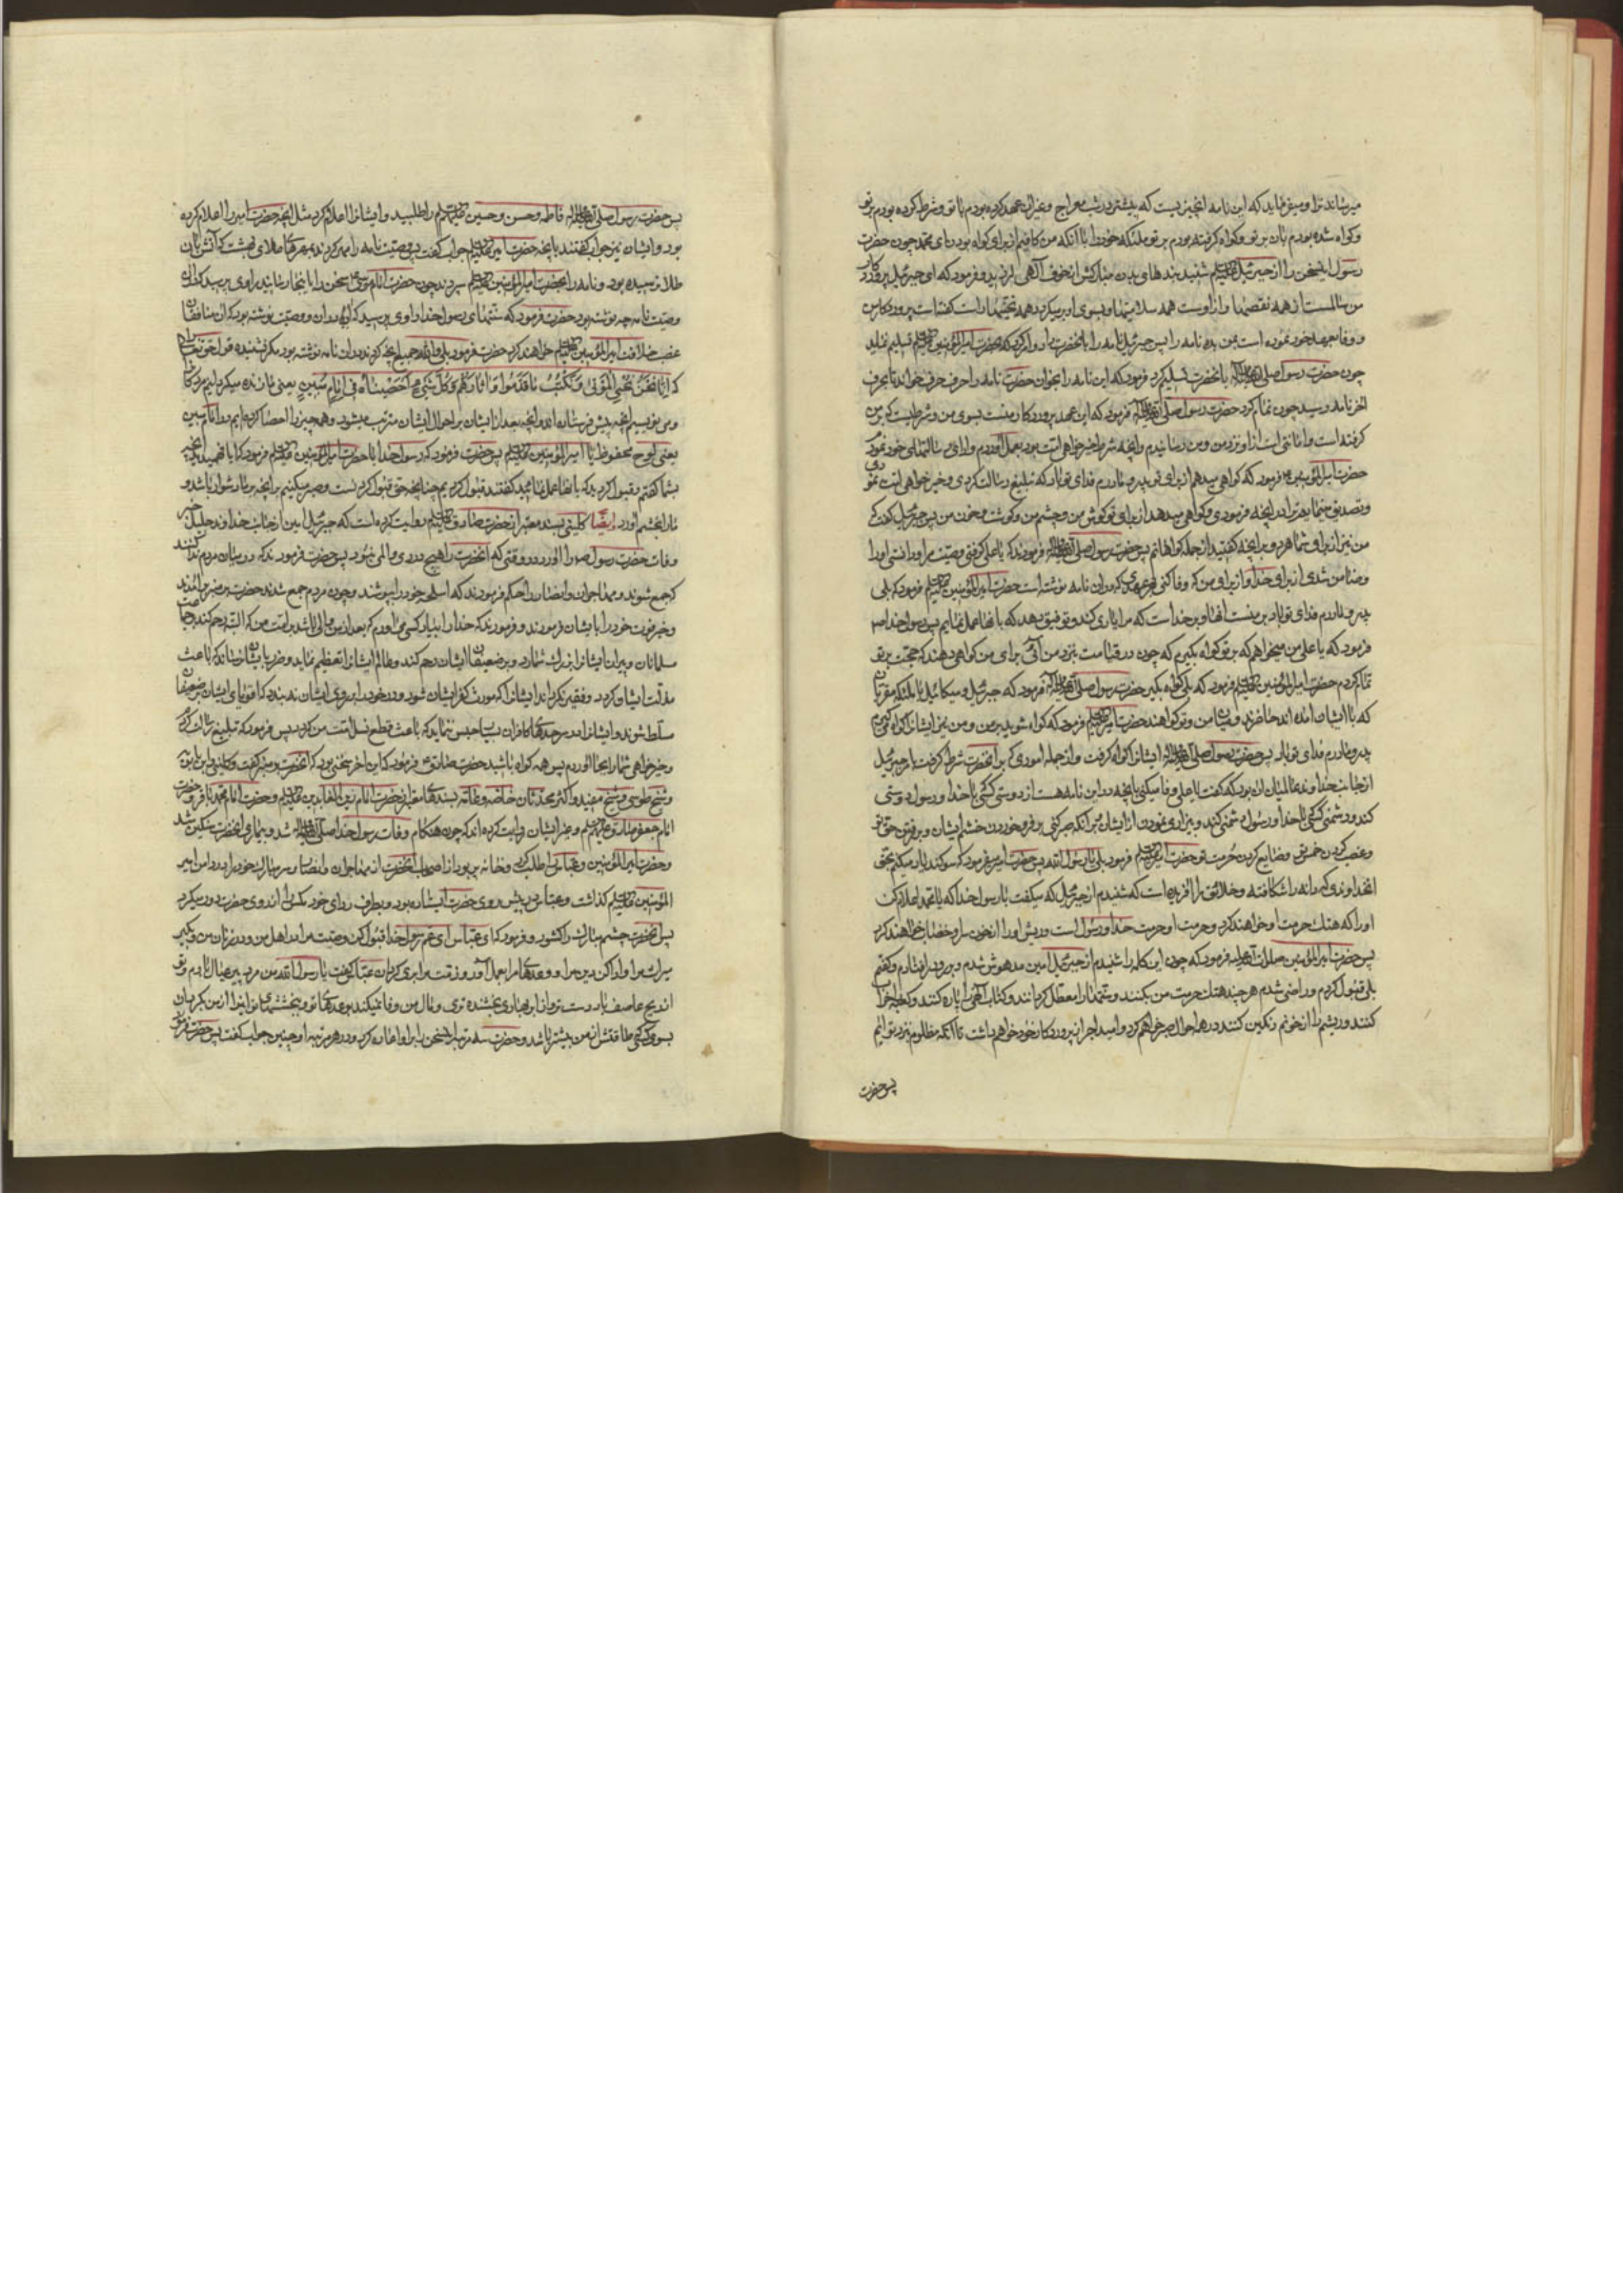 میرساند ترا و میفرماید که این نامه آن چیزیست که پیشتر در شب معراج و غیر آن عهد کرده بودم با تو و شرط کرده بودم بر تو
و گواه شده بودم بآن بر تو و گواه گرفته بودم بر تو ملئکه خود را با آنکه من کافیم از برای گواه بودن ای محمد چون حضرت
رسول این سخن را از جبرئیل علیه السلام شنید بند های بدن مبارکش از خوف الهی لرزید و فرمود که ای جبرئیل پروردکار
من سالمست از همه نقصها و از اوست همه سلامتیها و بسوی او بر میکردد همه تحیتها راست گفته است پروردکار من
و وفا بعهد خود نموده است بمن بده نامه را پس جبرئیل نامه را بآنحضرت داد و امر کرد که بحضرت امیر المؤمنین علیه السلام تسلیم نماید
چون حضرت رسول صلی الله علیه وآله بآنحضرت تسلیم کرد فرمود که این نامه را بخوان حضرت نامه را حرف حرف خواند تا بحرف
آخر نامه رسید چون تمام کرد حضرت رسول صلی الله علیه وآله فرمود که این عهد پروردکار منست بسوی من و شرطیست که بر من
گرفته است و امانتی است از او نزد من و من رسانیدم و آنچه شرط خیر خواهی امت بود بعمل آوردم و ادای رسالتهای خود نمودم
حضرت امیر المؤمنین فرمود که گواهی میدهم از برای تو پدر و مادرم فدای تو باد که تبلیغ رسالت کردی و خیر خواهی امت نمودی
و تصدیق مینمایم ترا در آنچه فرمودی و گواهی میدهد از برای تو گوش من و چشم من و گوشت و خون من پس جبرئیل گفت که
من نیز از برای شما هر دو بر آنچه گفتید از جمله گواهانم پس حضرت رسول صلی الله علیه وآله فرمودند که یا علی گرفتی وصیت مرا و دانستی او را
و ضامن شدی از برای خدا و از برای من که وفا کنی بهر عهدی که در آن نامه نوشته است حضرت امیر المؤمنین علیه السلام فرمود که بلی
پدر و مادرم فدای تو باد بر منست ضمان آنها و بر خداست که مرا یاری کند و توفیق دهد که بآنها عمل نمایم پس رسول خدا ص
فرمود که یا علی من میخواهم که بر تو گواه بگیرم که چون در قیامت بنزد من آئی برای من گواهی دهند که حجت بر تو
تمام کردم حضرت امیر المؤمنین علیه السلام فرمود که بلی گواه بگیر حضرت رسول صلی الله علیه وآله فرمود که جبرئیل و میکائیل با ملئکه مقربان
که با ایشان آمده اند حاضرند و میان من و تو گواهند حضرت امیر علیه السلام فرمود که گواه شوید بر من و من نیز ایشانرا گواه میگیرم
پدر و مادرم فدای تو باد پس حضرت رسول صلی الله علیه وآله ایشانرا گواه گرفت و از جمله اموری که بر آنحضرت شرط گرفت از جبرئیل
از جانب خداوند عالمیان آن بود که گفت یا علی وفا میکنی بآنچه در این نامه هست از دوستی کسی که با خدا و رسول دوستی
کند و دشمنی کسی که با خدا و رسول دشمنی کند و بیزاری نمودن از ایشان بر آنکه صبر کنی بر فرو خوردن خشم ایشان و بر رفتن حق تو
و غصب کردن خمس تو و ضایع کردن حرمت تو حضرت امیر علیه السلام فرمود بلی یا رسول الله پس حضرت امیر فرمود که سوگند یاد میکنم بحق
آنخداوندی که دانه را شکافته و خلایق را آفریده است که شنیدم از جبرئیل که میگفت با رسول خدا که یا محمد اعلام کن
او را که هتک حرمت او خواهند کرد و حرمت او حرمت خدا و رسول است و ریش او را از خون سر او خضاب خواهند کرد
پس حضرت امیر المؤمنین صلوات الله علیه فرمود که چون این کلمه را شنیدم از جبرئیل امین مدهوش شدم و بر رو در افتادم و گفتم
بلی قبول کردم و راضی شدم هر چند هتک حرمت من بکنند و سنتها را معطل گردانند و کتاب الهی را پاره کنند و کعبه را خراب
کنند و ریشم را از خونم رنگین کنند در همه احوال صبر خواهم کرد و امید اجر از پروردکار خود خواهم داشت تا آنکه مظلوم بنزد تو آیم
پس حضرت
پس حضرت رسول صلی الله علیه وآله فاطمه و حسن و حسین علیهم السلام را طلبید و ایشانرا اعلام کرد مثل آنچه حضرت امیر را اعلام کرده
بود و ایشان نیز جواب گفتند بآنچه حضرت امیر علیه السلام جواب گفت پس وصیت نامه را مهر کردند بمهرهای طلای بهشت که آتش بآن
طلا نرسیده بود و نامه را بحضرت امیر المؤمنین علیه السلام سپردند چون حضرت امام موسی سخن را باینجا رسانید راوی پرسید که در آن
وصیت نامه چه نوشته بود حضرت فرمود که سنتهای رسول خدا راوی پرسید که آیا در آن وصیت نوشته بود که آن منافقان
غصب خلافت امیر المؤمنین علیه السلام خواهند کرد حضرت فرمود بلی والله جمیع آنچه کردند در آن نامه نوشته بود مگر نشنیده قول حق تعالی را
که إنا نحن نحیی الموتی و نکتب ما قدموا و آثارهم و کل شیء أحصیناه فی إمام مبین یعنی ما زنده میکردانیم مردکانرا
و می نویسیم آنچه پیش فرستاده اند و آنچه بعد از ایشان بر احوال ایشان مترتب میشود و همه چیز را احصا کرده ایم در امام مبین
یعنی لوح محفوظ یا امیر المؤمنین علیه السلام پس حضرت فرمود که رسول خدا با حضرت امیر المؤمنین علیه السلام فرمود که آیا فهمیدید آنچه
بشما گفتم و قبول کردید که بآنها عمل نمائید گفتند قبول کردیم چنانچه حق قبول کردنست و صبر میکنیم بر آنچه بر ما دشوار باشد و
ما را بخشم آورد ایضا کلینی بسند معتبر از حضرت صادق علیه السلام روایت کرده است که جبرئیل امین از جانب خداوند جلیل خبر
وفات حضرت رسول ص را آورد در وقتی که آنحضرت را هیچ دردی و المی نبود پس حضرت فرمود ندا که در میان مردم ندا کنند
که جمع شوند و مهاجران و انصار را حکم فرمودند که اسلحه خود را بپوشند و چون مردم جمع شدند حضرت بر منبر برآمدند
و خبر فوت خود را بایشان فرمودند و فرمودند که خدا را بیاد کسی می آورم که بعد از من والی باشد بر امت من که البته رحم کند بر جماعت
مسلمانان و پیران ایشانرا بزرک شمارد و بر ضعیفان ایشان رحم کند و عالم ایشانرا تعظیم نماید و ضرر بایشان نرساند که باعث
مذلت ایشان گردد و فقیر نکرداند ایشانرا که مورث کفر ایشان شود و در خود را بر روی ایشان نه بندد که اقویای ایشان بر ضعیفان
مسلط شوند و ایشانرا در سرحدهای کافران بسیار حبس ننماید که باعث قطع نسل امت من گردد پس فرمود که تبلیغ رسالت کردم
و خیر خواهی شما را بجا آوردم پس همه گواه باشید حضرت صادق ع فرمود که این آخر سخنی بود که آنحضرت بر منبر گفت و کلینی و ابن بابویه
و شیخ طوسی و شیخ مفید و اکثر محدثان خاصه و عامه بسندهای معتبر از حضرت امام زین العابدین علیه السلام و حضرت امام محمد باقر و حضرت
امام جعفر صادق علیهم السلام و غیر ایشان روایت کرده اند که چون هنکام وفات رسول خدا صلی الله علیه وآله شد و بیماری آنحضرت سنگین شد
و حضرت امیر المؤمنین و عباس را طلب کرد و خانه پر بود از اصحاب آنحضرت از مهاجران و انصار و سر مبارک خود را در دامن امیر
المؤمنین علیه السلام گذاشت و عباس در پیش روی حضرت ایستاده بود و بطرف ردای خود مگس را از روی حضرت دور میکرد
پس آنحضرت چشم مبارک را گشود و فرمود که ای عباس ای عم رسول خدا قبول کن وصیت مرا در اهل من و در زنان من و بگیر
میراث مرا و ادا کن دین مرا و وعدهای مرا بعمل آور و ذمت مرا بری گردان عباس گفت یا رسول الله من مرد پیر عیال دارم و تو
از ریح عاصف و ابر بهاری بخشنده تری و مال من وفا نمیکند بوعدهای تو و بخششهای تو اینرا از من بگردان
بسوی کسی که طاقتش از من بیشتر باشد و حضرت سه مرتبه این سخن را بر او اعاده کرد و در هر مرتبه او چنین جواب گفت پس حضرت فرمود